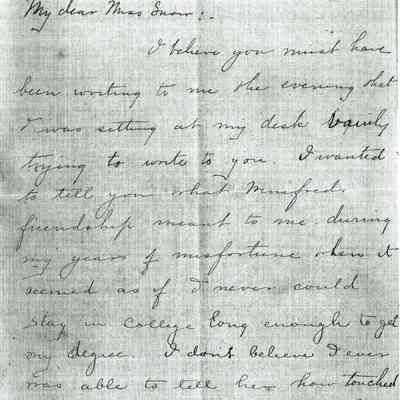 My dear Miss Snow:-
I believe you must have
been writing to me the evening that
I was sitting at my desk vainly
trying to write to you. I wanted
to tell you what Winifred's
friendship meant to me during
my years of misfortune when it
seemed as if I never could
stay in college long enough to get
my degree. I don't believe I ever
was able to tell her how touched